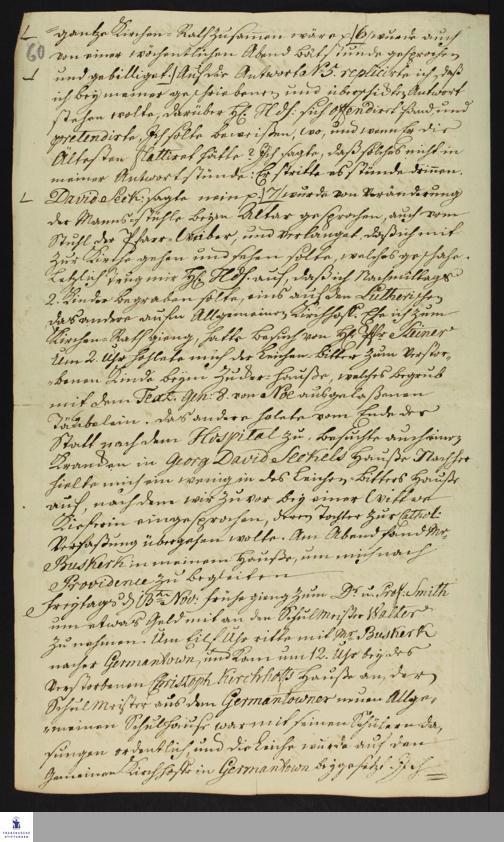 gantze Kirchen-Rath zusamen wäre. 6) wurde auch
60
von einer wöchentlichen Abend bätstunde gesprochen
und gebilliget. Auf die Antwort N. 5. replicirte ich, daß
ich bey meiner geschriebenen und überschickten Antwort
stehen wolte, darüber H. Hdf. sich offendirt fand, und
prætendirte, ich solte beweisen, wo, und wenn er die
Ältesten flattiret hätte? Ich sagte, daß solches nicht in
meiner Antwort stünde: Er stritte es stünde drinnen.
David Seck: sagte nein. 7) wurde von Veränderung
der Manns stühle beym Altar gesprochen, auch vom
Stuhl der Pfarr-Weiber, und verlanget, daß ich mit
zur Kirche gehen und sehen solte, welches geschahe.
Letzlich trug mir H. Hdf. auf, daß ich Nachmittags
2. Kinder begraben solte, eins auf den Lutherischen
das andere aufm Allgemeinen Kirchhoff. Ehe ich zum
Kirchen-Rath gieng, hatte besuch von H. Pfr Steiner.
Um 2. Uhr holete mich der Leichen-Bitter zum verstor-
benen Kinde beym Zucker-Hauße, welches begrub
mit dem Text Gen: 8. von Noæ ausgelaßenen
Täubelein. das andere holete vom Ende der
Statt nach dem Hospital zu. besuchte auch einen
Krancken in Georg David Seckels Hauße. Nachher
hielte mich ein wenig in des Leichen-Bitters Hauße
auf, nachdem wir zuvor bey einer Wittwe
Kieferin eingesprochen, deren Tochter zur Cathol:
Verfaßung übergehen wolte. Am Abend fand Mr
Buskerk in meinem Hauße, um mich nach
Providence zu begleiten
Freytags d Nov: frühe gieng zum Dr. u. Prof. Smith
um etwas Geld mit an den Schulmeister Waller
zu nehmen. Um Eilf Uhr ritte mit Mr Buskerk
nacher Germantown, und kam um 12. Uhr bey des
verstorbenen Christoph Kirchhoffs Hauße an, der
Schulmeister aus dem Germantowner neuen Allge-
meinen Schulhauße war mit seinen Schülern da,
sungen ordentlich, und die Leiche wurde auf den
Gemeinen Kirchhoffe in Germantown beygesetzt. Ich
FRANCKESCHE
STIFTUNGEN